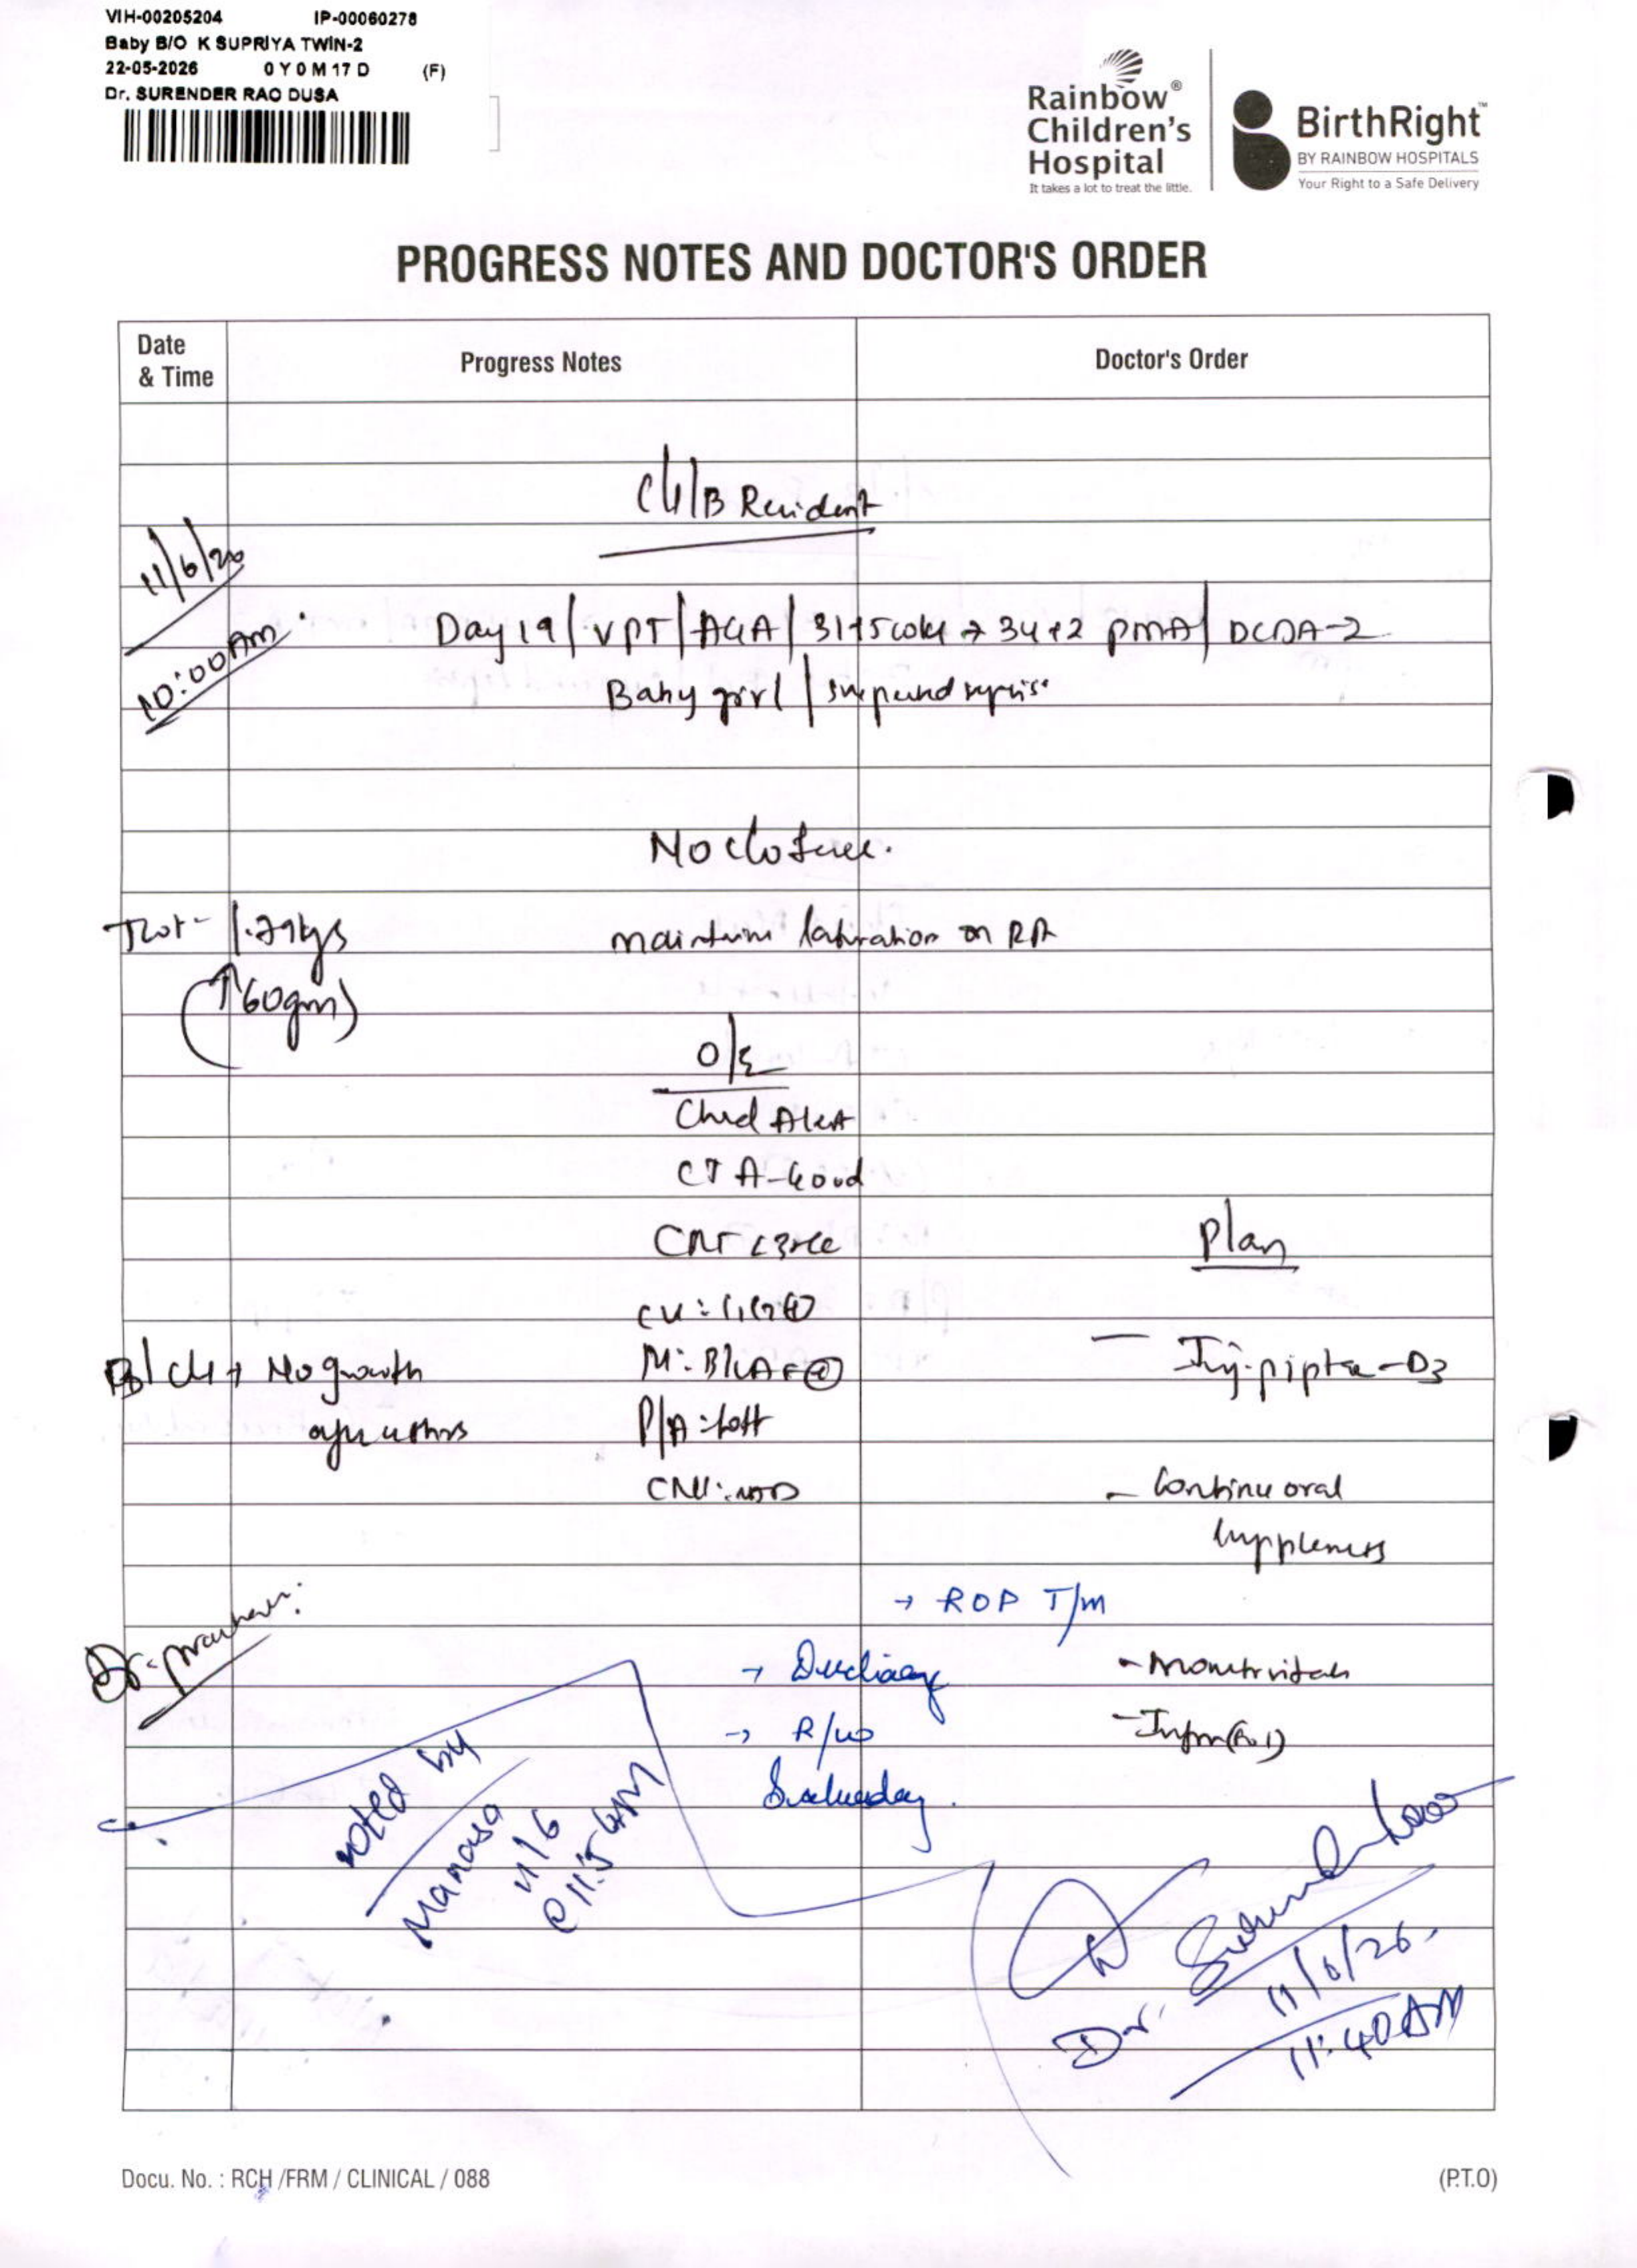 VIH-00205204 IP-00060278
Baby B/O K SUPRIYA TWIN-2
22-05-2026 0 Y 0 M 17 D (F)
Dr. SURENDER RAO DUSA
Rainbow® Children's Hospital
It takes a lot to treat the little.
BirthRight™
BY RAINBOW HOSPITALS
Your Right to a Safe Delivery
PROGRESS NOTES AND DOCTOR'S ORDER
Date & Time
Progress Notes
Doctor's Order
C/S/B Resident
11/6/26
10:00 AM
Day 19 / VPT / AGA / 31+5 weeks → 34+2 PMA / DCDA-2
Baby girl / suspected sepsis
No
1.79 kgs
(↑60gm)
maintain saturation on RA
O/E
Child Alert
CTA-Good
CRT <3sec
Plan
P/A: soft
CNS: NAD
B/C/S → No growth
- Inj. piptaz - D3
- Continue oral
supplements
→ ROP T/m
- Monitor vitals
→ R/w
Saturday.
- Inform (SOS)
noted by
Manasa
11/6
Dr. Surender Rao
11/6/26.
11:40 AM
Docu. No. : RCH /FRM / CLINICAL / 088
(P.T.O)